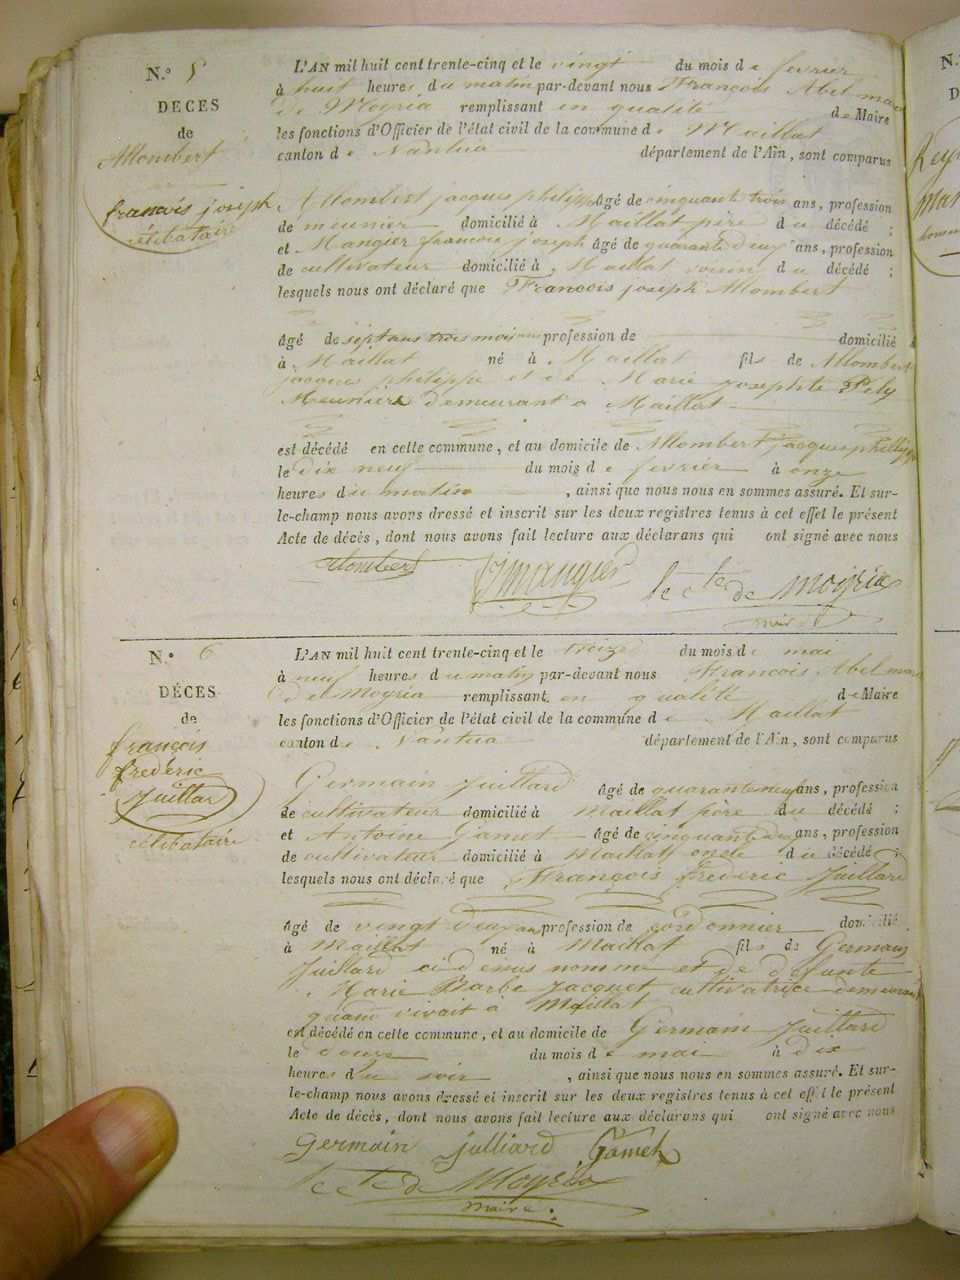 N.° 5
DECES
de
Allombert
françois joseph
célibataire
L'AN mil huit cent trente-cinq et le vingt du mois de fevrier
à huit heures du matin par-devant nous François Abel marie
de Moyria remplissant en qualité de Maire
les fonctions d'Officier de l'état civil de la commune de Maillat
canton de Nantua département de l'Ain, sont comparus
Allombert jacques philippe âgé de cinquante trois ans, profession
de meunier domicilié à Maillat père du décédé ;
et Mangier françois joseph âgé de quarante deux ans, profession
de cultivateur domicilié à Maillat du décédé ;
lesquels nous ont déclaré que François joseph Allombert
âgé de sept ans trois mois profession de domicilié
à Maillat né à Maillat fils de Allombert
jacques philippe et de Marie josephte
Meuniers demeurant a Maillat
est décédé en cette commune, et au domicile de Allombert jacques philippe
le dix neuf du mois de fevrier à onze
heures du matin, ainsi que nous nous en sommes assuré. Et sur-
le-champ nous avons dressé et inscrit sur les deux registres tenus à cet effet le présent
Acte de décès, dont nous avons fait lecture aux déclarans qui ont signé avec nous
Allombert fj mangier le cte de Moyria
maire
N.° 6
DÉCES
de
françois
frederic
Juillard
célibataire
L'AN mil huit cent trente-cinq et le treize du mois de mai
à neuf heures du matin par-devant nous François Abel marie
de Moyria remplissant en qualité de Maire
les fonctions d'Officier de l'état civil de la commune de Maillat
canton de Nantua département de l'Ain, sont comparus
Germain Juillard âgé de quarante neuf ans, profession
de cultivateur domicilié à Maillat père du décédé ;
et Antoine Gamet âgé de cinquante deux ans, profession
de cultivateur domicilié à Maillat oncle du décédé ;
lesquels nous ont déclaré que François frederic Juillard
âgé de vingt deux ans profession de cordonnier domicilié
à Maillat né à Maillat fils de Germain
Juillard ci dessus nommé et de defunte
Marie Barbe Jacquet cultivatrice demeurant
quand vivait à Maillat
est décédé en cette commune, et au domicile de Germain Juillard
le douze du mois de mai à dix
heures du soir, ainsi que nous nous en sommes assuré. Et sur-
le-champ nous avons dressé et inscrit sur les deux registres tenus à cet effet le présent
Acte de décès, dont nous avons fait lecture aux déclarans qui ont signé avec nous
Germain juilliard Gamet
le cte de Moyria
maire